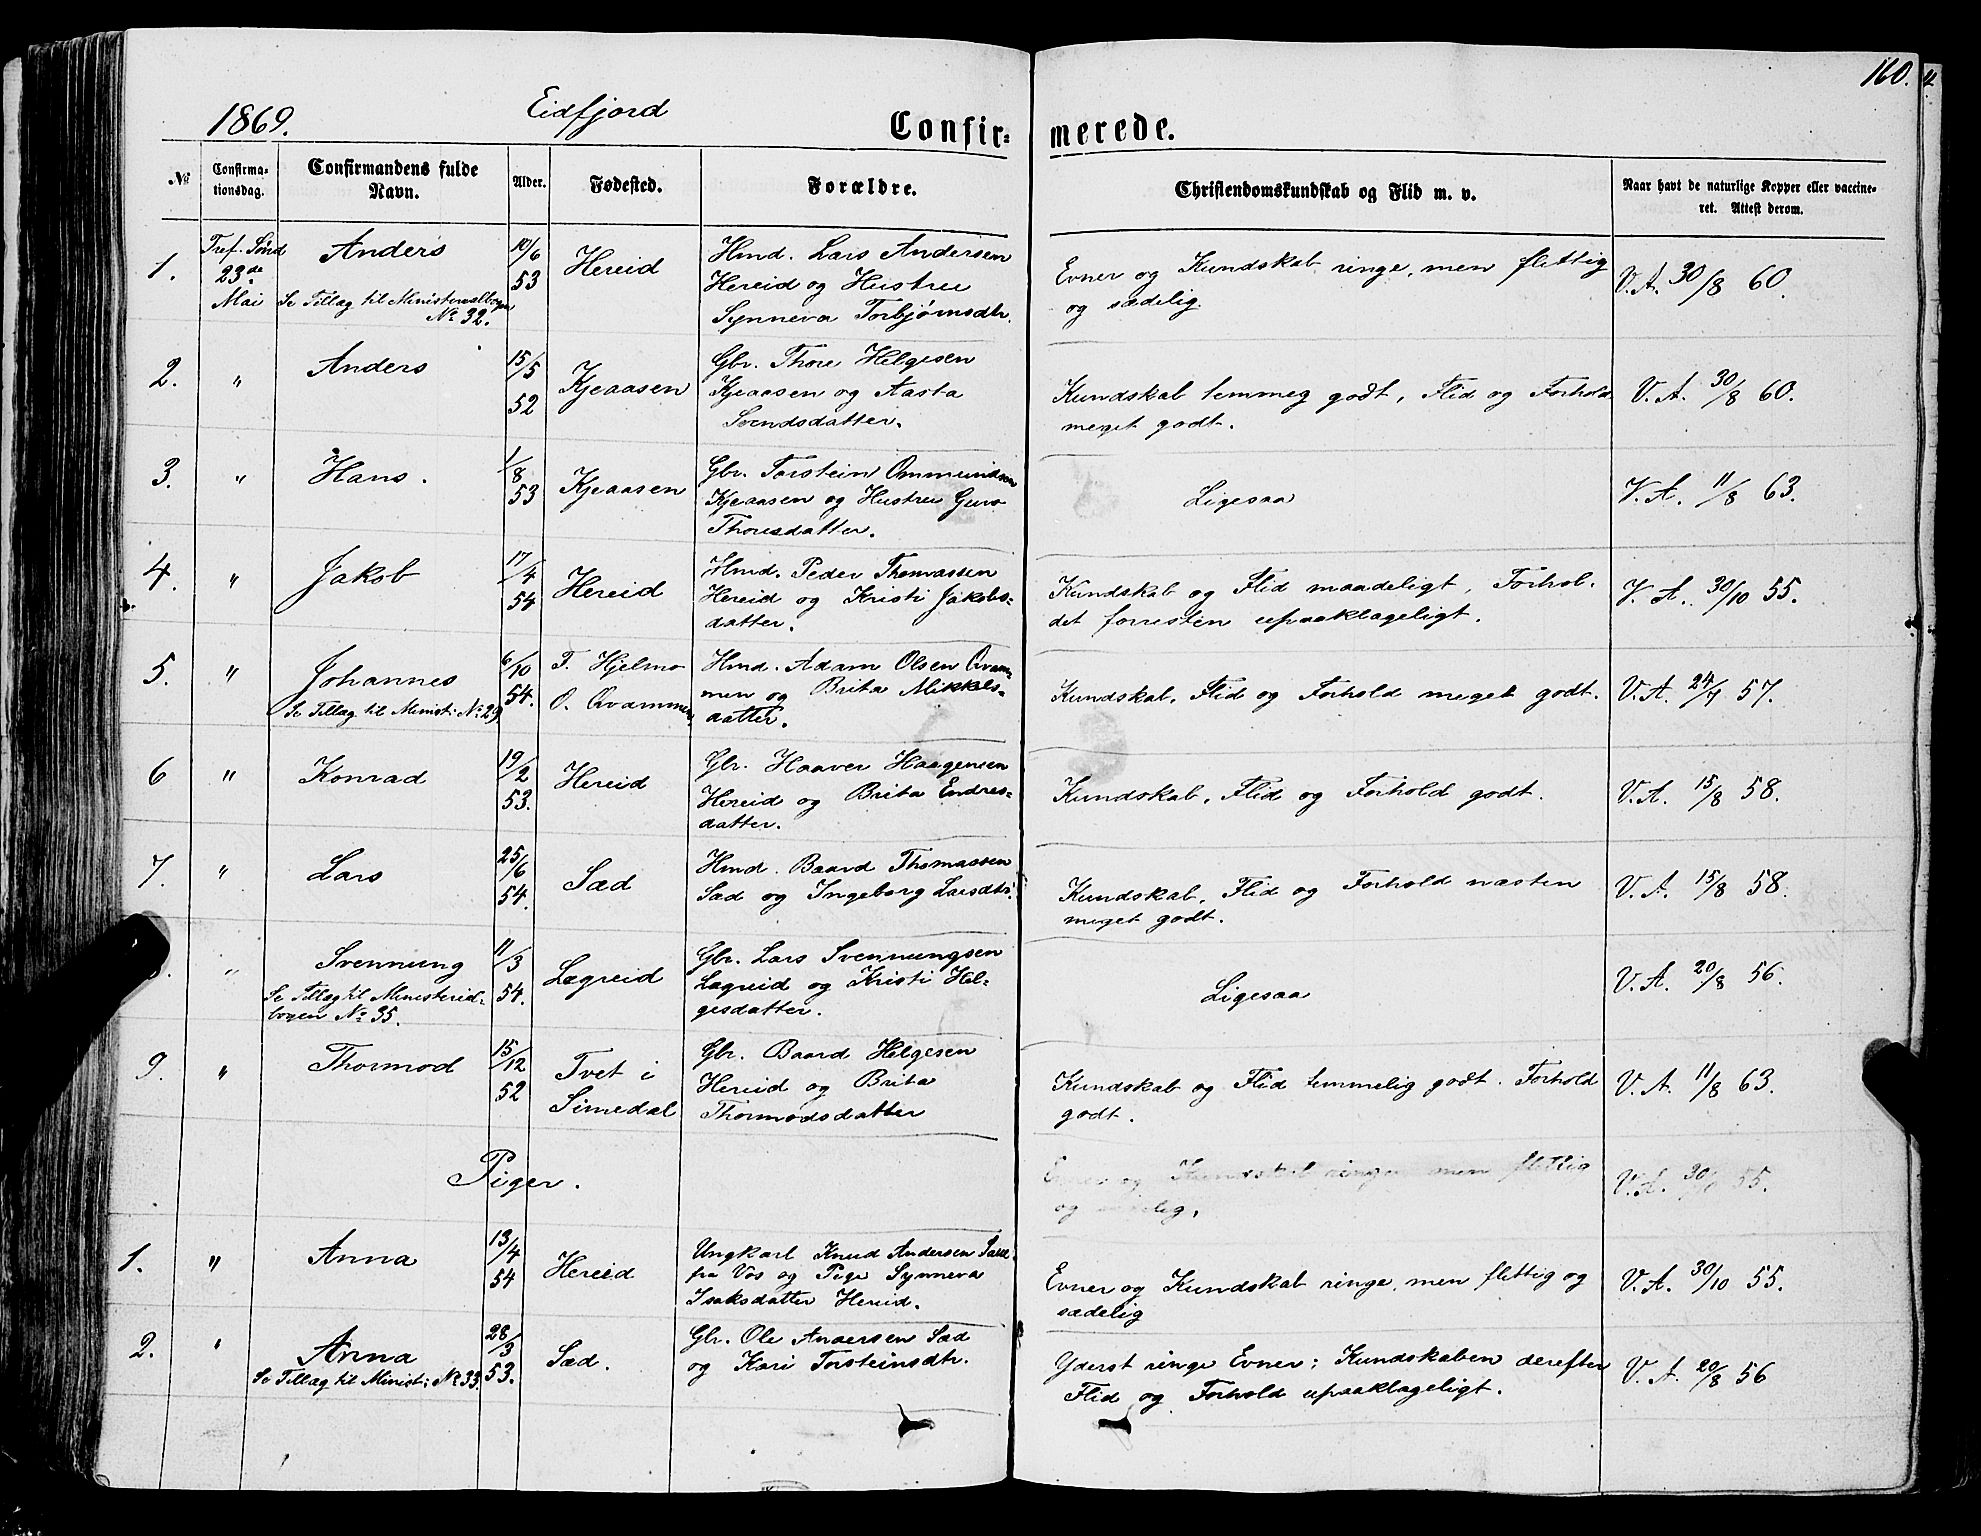 160.
1869.
Eidfjord
Confir-
merede.
No
Confirma-
tionsdag.
Confirmandens fulde
Navn.
Alder.
Fødested.
Forældre.
Christendomskundskab og Flid m. v.
Naar havt de naturlige Kopper eller vaccine-
ret. Attest derom.
1.
Tref. Sønd
23de
Mai
Anders
Se Tillæg til Ministerialbogen
No 32.
10/6
53
Hereid
Hmd. Lars Andersen
Hereid og Hustru
Synneva Torbjørnsdtr.
Evner og Kundskab ringe, men flittig
og sædelig.
V. A. 30/8 60.
2.
"
Anders
15/5
52
Kjeaasen
Gbr. Thore Helgesen
Kjeaasen og Aasta
Svendsdatter.
Kundskab temmeg godt, Flid og Forhold
meget godt.
V. A. 30/8 60.
3.
"
Hans.
1/8
53
Kjeaasen
Gbr. Torstein Ommundsen
Kjeaasen og Hustru Guro
Thoresdatter.
Ligesaa
V. A. 11/8 63.
4.
"
Jakob
17/4
54
Hereid
Hmd. Peder Thomassen
Hereid og Kristi Jakobs-
datter.
Kundskab og Flid maadeligt, Forhol-
det forresten upaaklageligt.
V. A. 30/10 55.
5.
"
Johannes
Se Tillæg til Minist: No 29
6/10
54.
F. Hjelmo
O. Qvammen
Hmd. Adam Olsen Qvam-
men og Brita Mikkels-
datter.
Kundskab, Flid og Forhold meget godt.
V. A. 24/7 57.
6
"
Konrad
19/2
53.
Hereid
Gbr. Haaver Haagensen
Hereid og Brita Endres-
datter.
Kundskab, Flid og Forhold godt.
V. A. 15/8 58.
7.
"
Lars
25/6
54.
Sæd
Hmd. Baard Thomassen
Sæd og Ingeborg Larsdtr.
Kundskab, Flid og Forhold næsten
meget godt.
V. A. 15/8 58.
8.
"
Svennung
Se Tillæg til Ministerial-
bogen No 35.
11/3
54.
Lægreid
Gbr. Lars Svennungsen
Lægreid og Kristi Hel-
gesdatter.
Ligesaa
V. A. 20/8 56.
9.
"
Thormod
15/12
52
Tvet i
Simedal
Gbr. Baard Helgesen
Hereid og Brita
Thormodsdatter
Kundskab og Flid temmelig godt. Forhold
godt.
V. A. 11/8 63.
Piger.
og Kundskab ringe men flittig
og
V. A. 30/ 55.
1.
"
Anna
13/4
54
Hereid
Ungkarl Knud Andersen
fra Vos og Pige Synneva
Isaksdatter Hereid.
Evner og Kundskab ringe, men flittig og
sædelig
V. A. 30/10 55.
2.
"
Anna
Se Tillæg til Minist: No 33.
28/3
53.
Sæd.
Gbr. Ole Andersen Sæd
og Kari Torsteinsdtr.
Yderst ringe Evner; Kundskaben derefter
Flid og Forhold upaaklageligt.
V. A. 20/8 56